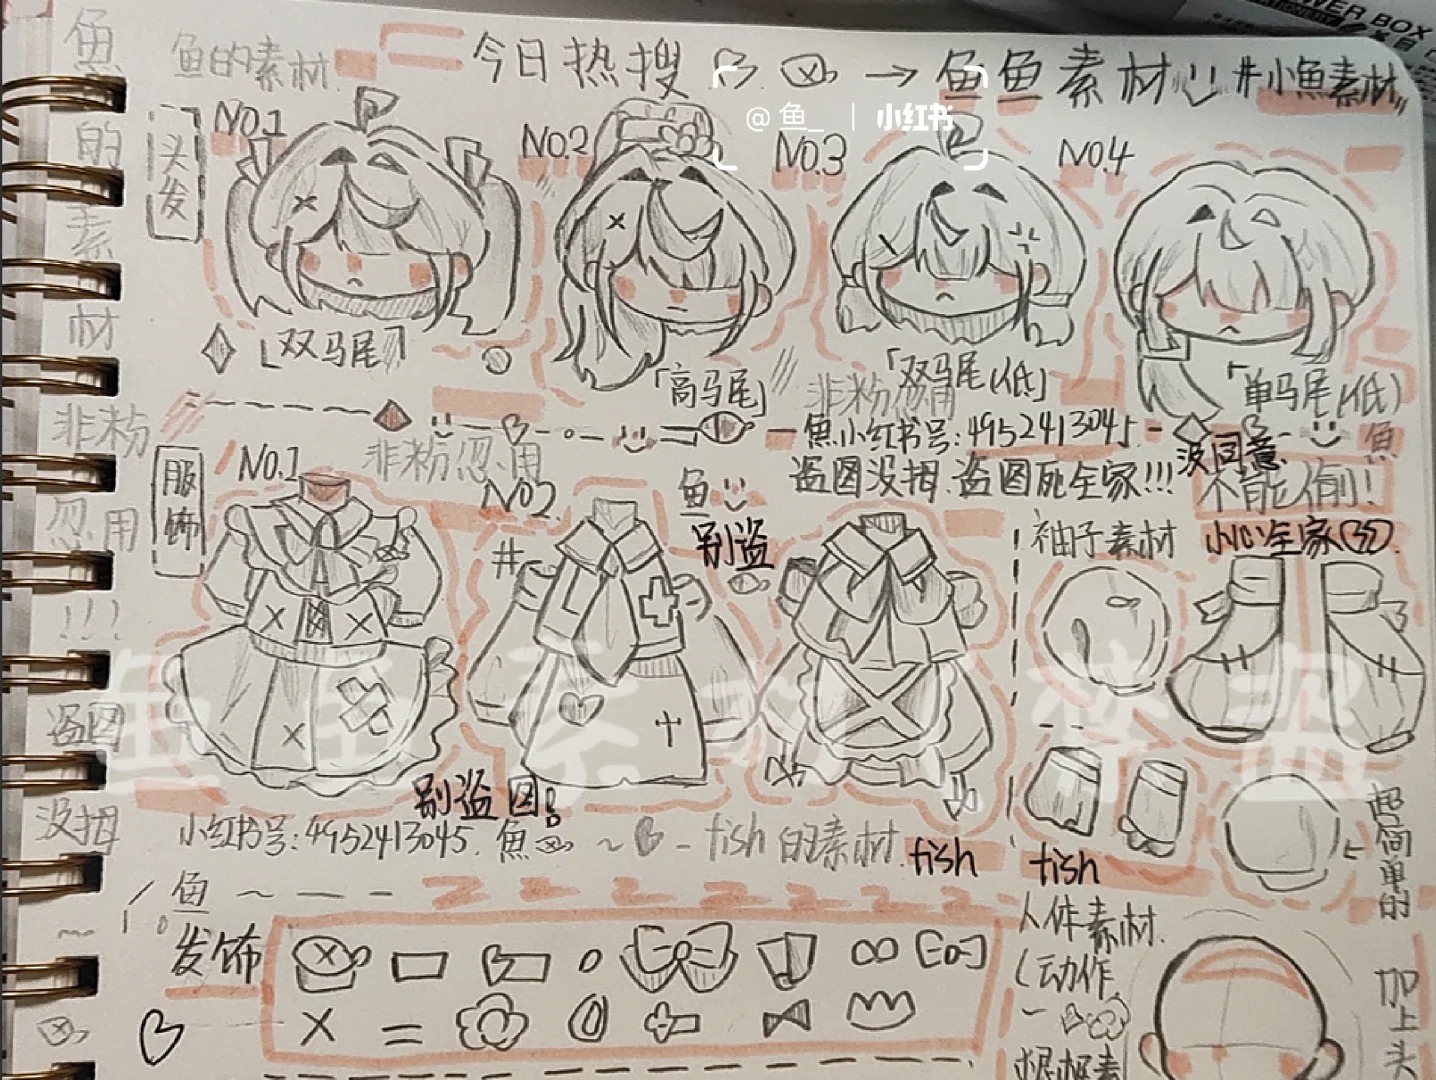 POWER BOX
鱼的素材
今日热搜 → 鱼鱼素材 #小魚素材
@鱼_ | 小红书
头发
No.1
No.2
No.3
No.4
「双马尾」
「高马尾」
「双马尾(低)」
「单马尾(低)
非粉勿用
魚小红书号:4952413045.
盗图没拇.盗图死全家!!!
没同意
不能偷!
小心全家
魚
服饰
No.1
非粉忽用
No2.
鱼
#
别盗
袖子素材
别盗图!
小红书号:4952413045. 魚 ~ - fish的素材.
fish
fish
鱼
发饰
人体素材.
(动作
超简单的
加上头
鱼的素材
非粉忽用!!!
盗图没拇
鱼鱼素材 禁盗